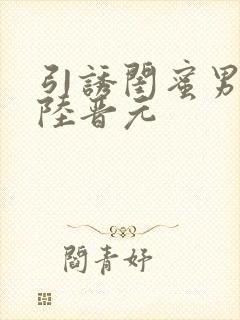 引誘閨蜜男
陸晋元
閻青妤